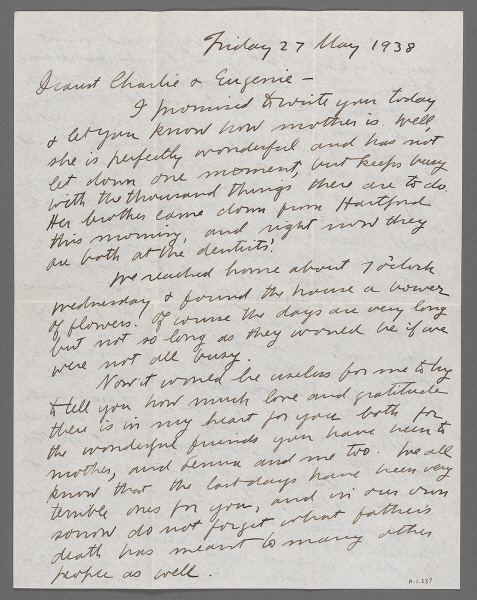 Friday 27 May 1938
Dearest Charlie & Eugenie –
I promised to write you today
& let you know how mother is. Well,
she is perfectly wonderful and has not
let down one moment, but keeps busy
with the thousand things there are to do.
Her brother came down from Hartford
this morning, and right now they
are both at the dentists'.
We reached home about 7 o'clock
Wednesday & found the house a bower
of flowers. Of course the days are very long
but not so long as they would be if we
were not all busy.
Now it would be useless for me to try
to tell you how much love and gratitude
there is in my heart for you both for
the wonderful friends you have been to
mother, and Lenna and me too. We all
know that the last days have been very
terrible ones for you, and in our own
sorrow do not forget what father's
death has meant to many other
people as well.
A-1.237